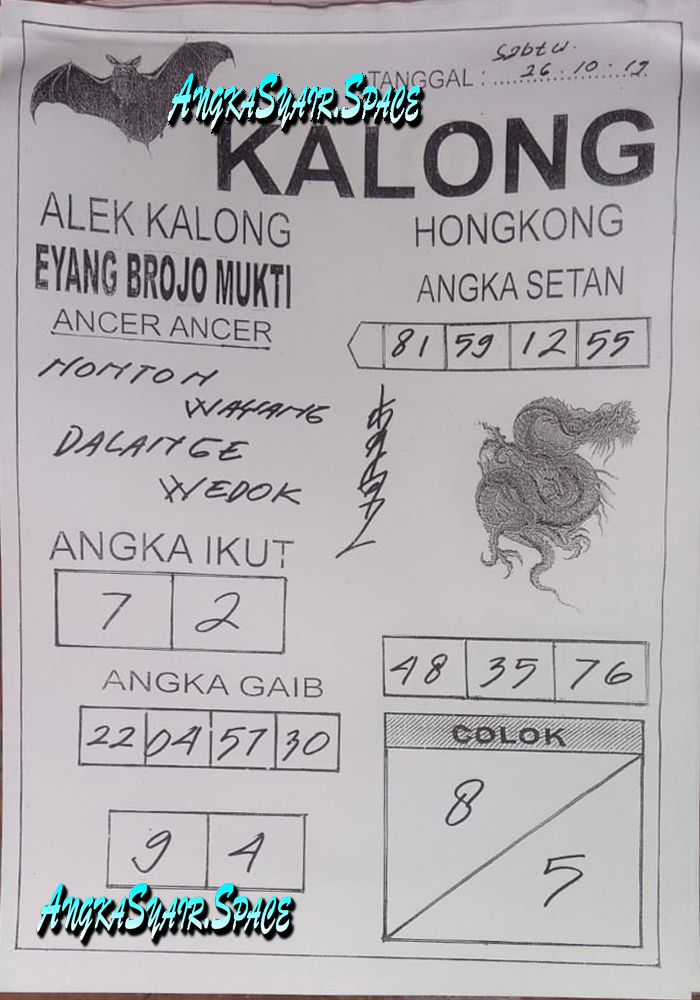 Sabtu.
TANGGAL : 26 · 10 · 19
AngkaSyair.Space
KALONG
ALEK KALONG
EYANG BROJO MUKTI
ANCER ANCER
HONGKONG
ANGKA SETAN
81 59 12 55
NONTON
WAYANG
DALANGE
WEDOK
ANGKA IKUT
7 2
ANGKA GAIB
22 04 57 30
9 4
48 35 76
COLOK
8
5
AngkaSyair.Space